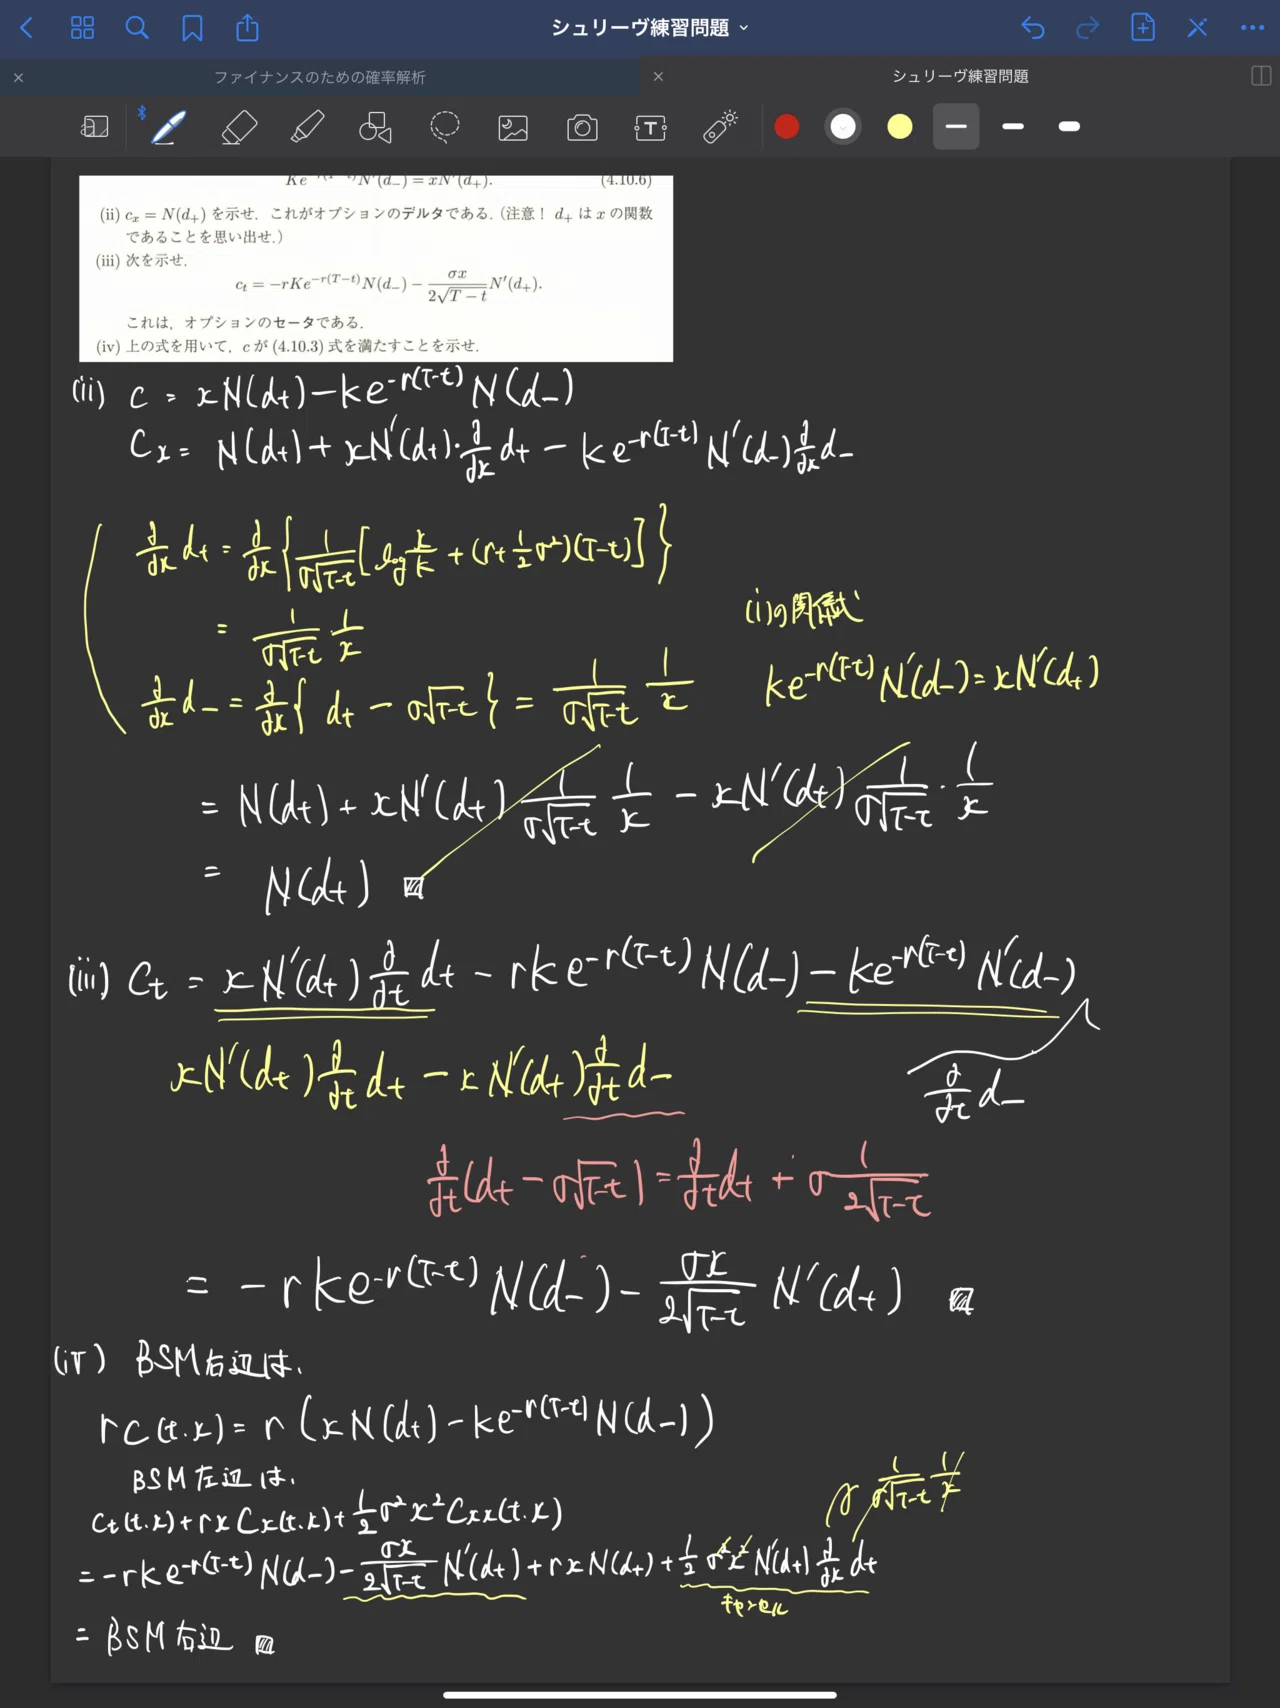 シュリーヴ練習問題
ファイナンスのための確率解析
シュリーヴ練習問題
Ke^{-r(T-t)}N'(d_-) = xN'(d_+). (4.10.6)
(ii) c_x = N(d_+) を示せ. これがオプションのデルタである. (注意! d_+ は x の関数
であることを思い出せ.)
(iii) 次を示せ.
c_t = -rKe^{-r(T-t)}N(d_-) - \frac{σx}{2\sqrt{T-t}}N'(d_+).
これは, オプションのセータである.
(iv) 上の式を用いて, c が (4.10.3) 式を満たすことを示せ.
(ii) C = xN(d+) - Ke^{-r(T-t)} N(d-)
Cx = N(d+) + xN'(d+)・\frac{∂}{∂x}d+ - Ke^{-r(T-t)} N'(d-)\frac{∂}{∂x}d-
\frac{∂}{∂x}d+ = \frac{∂}{∂x}{\frac{1}{σ\sqrt{T-t}}[log\frac{x}{K} + (r+\frac{1}{2}σ^2)(T-t)]}
= \frac{1}{σ\sqrt{T-t}}・\frac{1}{x}
(i)の関係式
\frac{∂}{∂x}d- = \frac{∂}{∂x}{d+ - σ\sqrt{T-t}} = \frac{1}{σ\sqrt{T-t}} \frac{1}{x}
Ke^{-r(T-t)} N'(d-) = xN'(d+)
= N(d+) + xN'(d+) \frac{1}{σ\sqrt{T-t}} \frac{1}{x} - xN'(d+) \frac{1}{σ\sqrt{T-t}}・\frac{1}{x}
= N(d+)
(iii) Ct = xN'(d+)\frac{∂}{∂t}d+ - rKe^{-r(T-t)} N(d-) - Ke^{-r(T-t)} N'(d-)
\frac{∂}{∂t}d-
xN'(d+)\frac{∂}{∂t}d+ - xN'(d+)\frac{∂}{∂t}d-
\frac{∂}{∂t}(d+ - σ\sqrt{T-t}) = \frac{∂}{∂t}d+ + σ\frac{1}{2\sqrt{T-t}}
= -rKe^{-r(T-t)} N(d-) - \frac{σx}{2\sqrt{T-t}} N'(d+)
(iv) BSM右辺は、
rC(t.x) = r(xN(d+) - Ke^{-r(T-t)} N(d-))
BSM左辺は、
Ct(t.x) + rxCx(t.x) + \frac{1}{2}σ^2x^2Cxx(t.x)
\frac{1}{σ\sqrt{T-t}} \frac{1}{x}
= -rKe^{-r(T-t)} N(d-) - \frac{σx}{2\sqrt{T-t}} N'(d+) + rxN(d+) + \frac{1}{2}σ^2x^2 N'(d+)\frac{∂}{∂x}d+
キャンセル
= BSM右辺